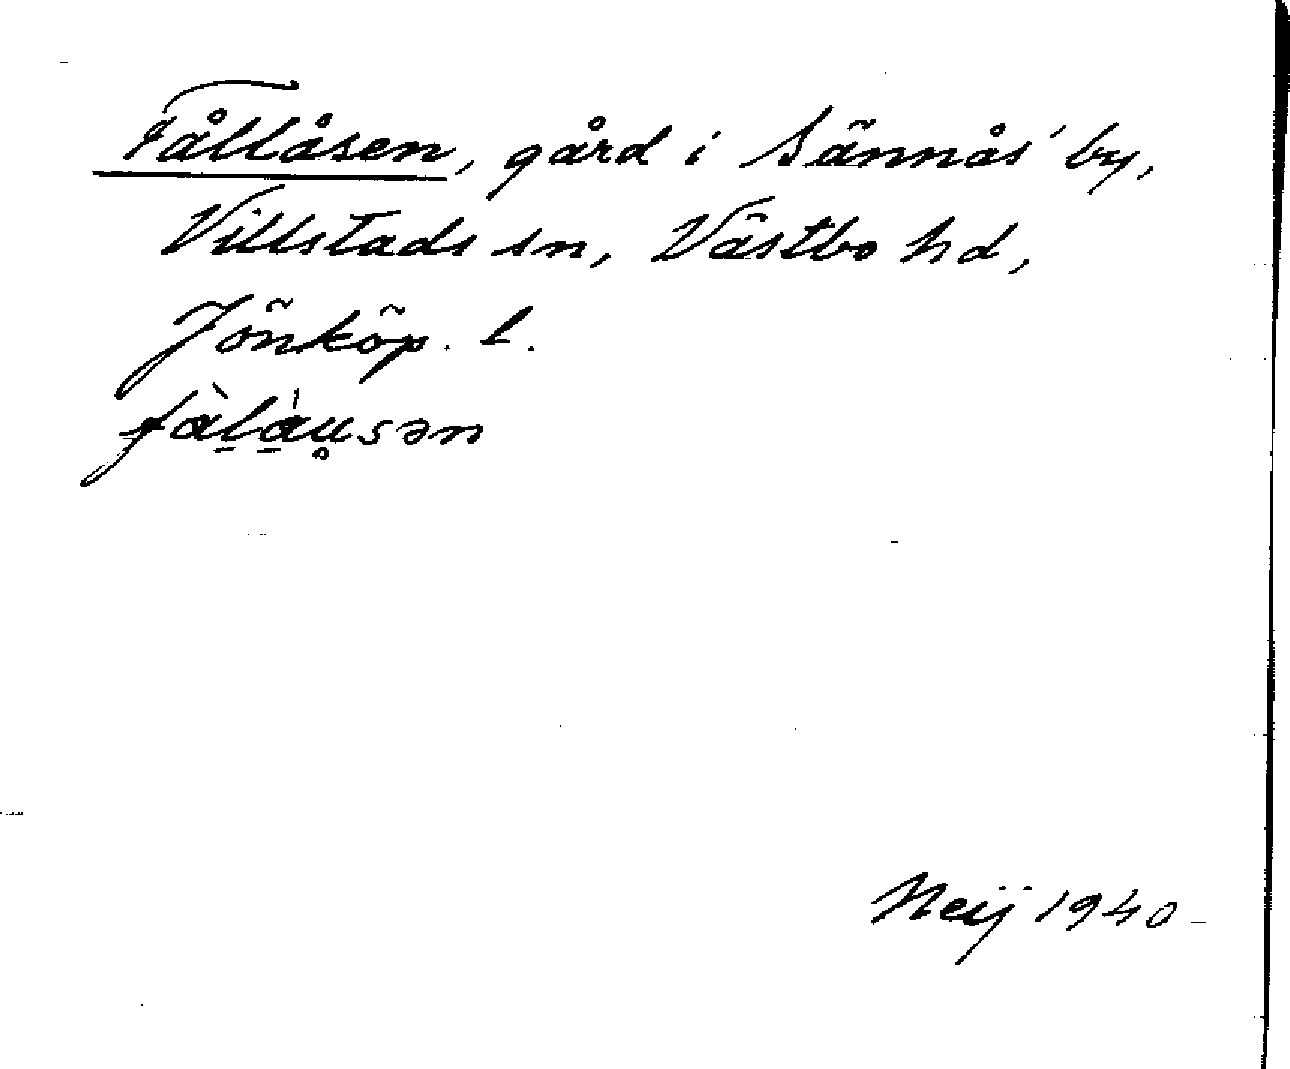 Fållåsen, gård i Sännås' by,
Villstads sn, Västbo hd,
Jönköp. l.
Neij 1940